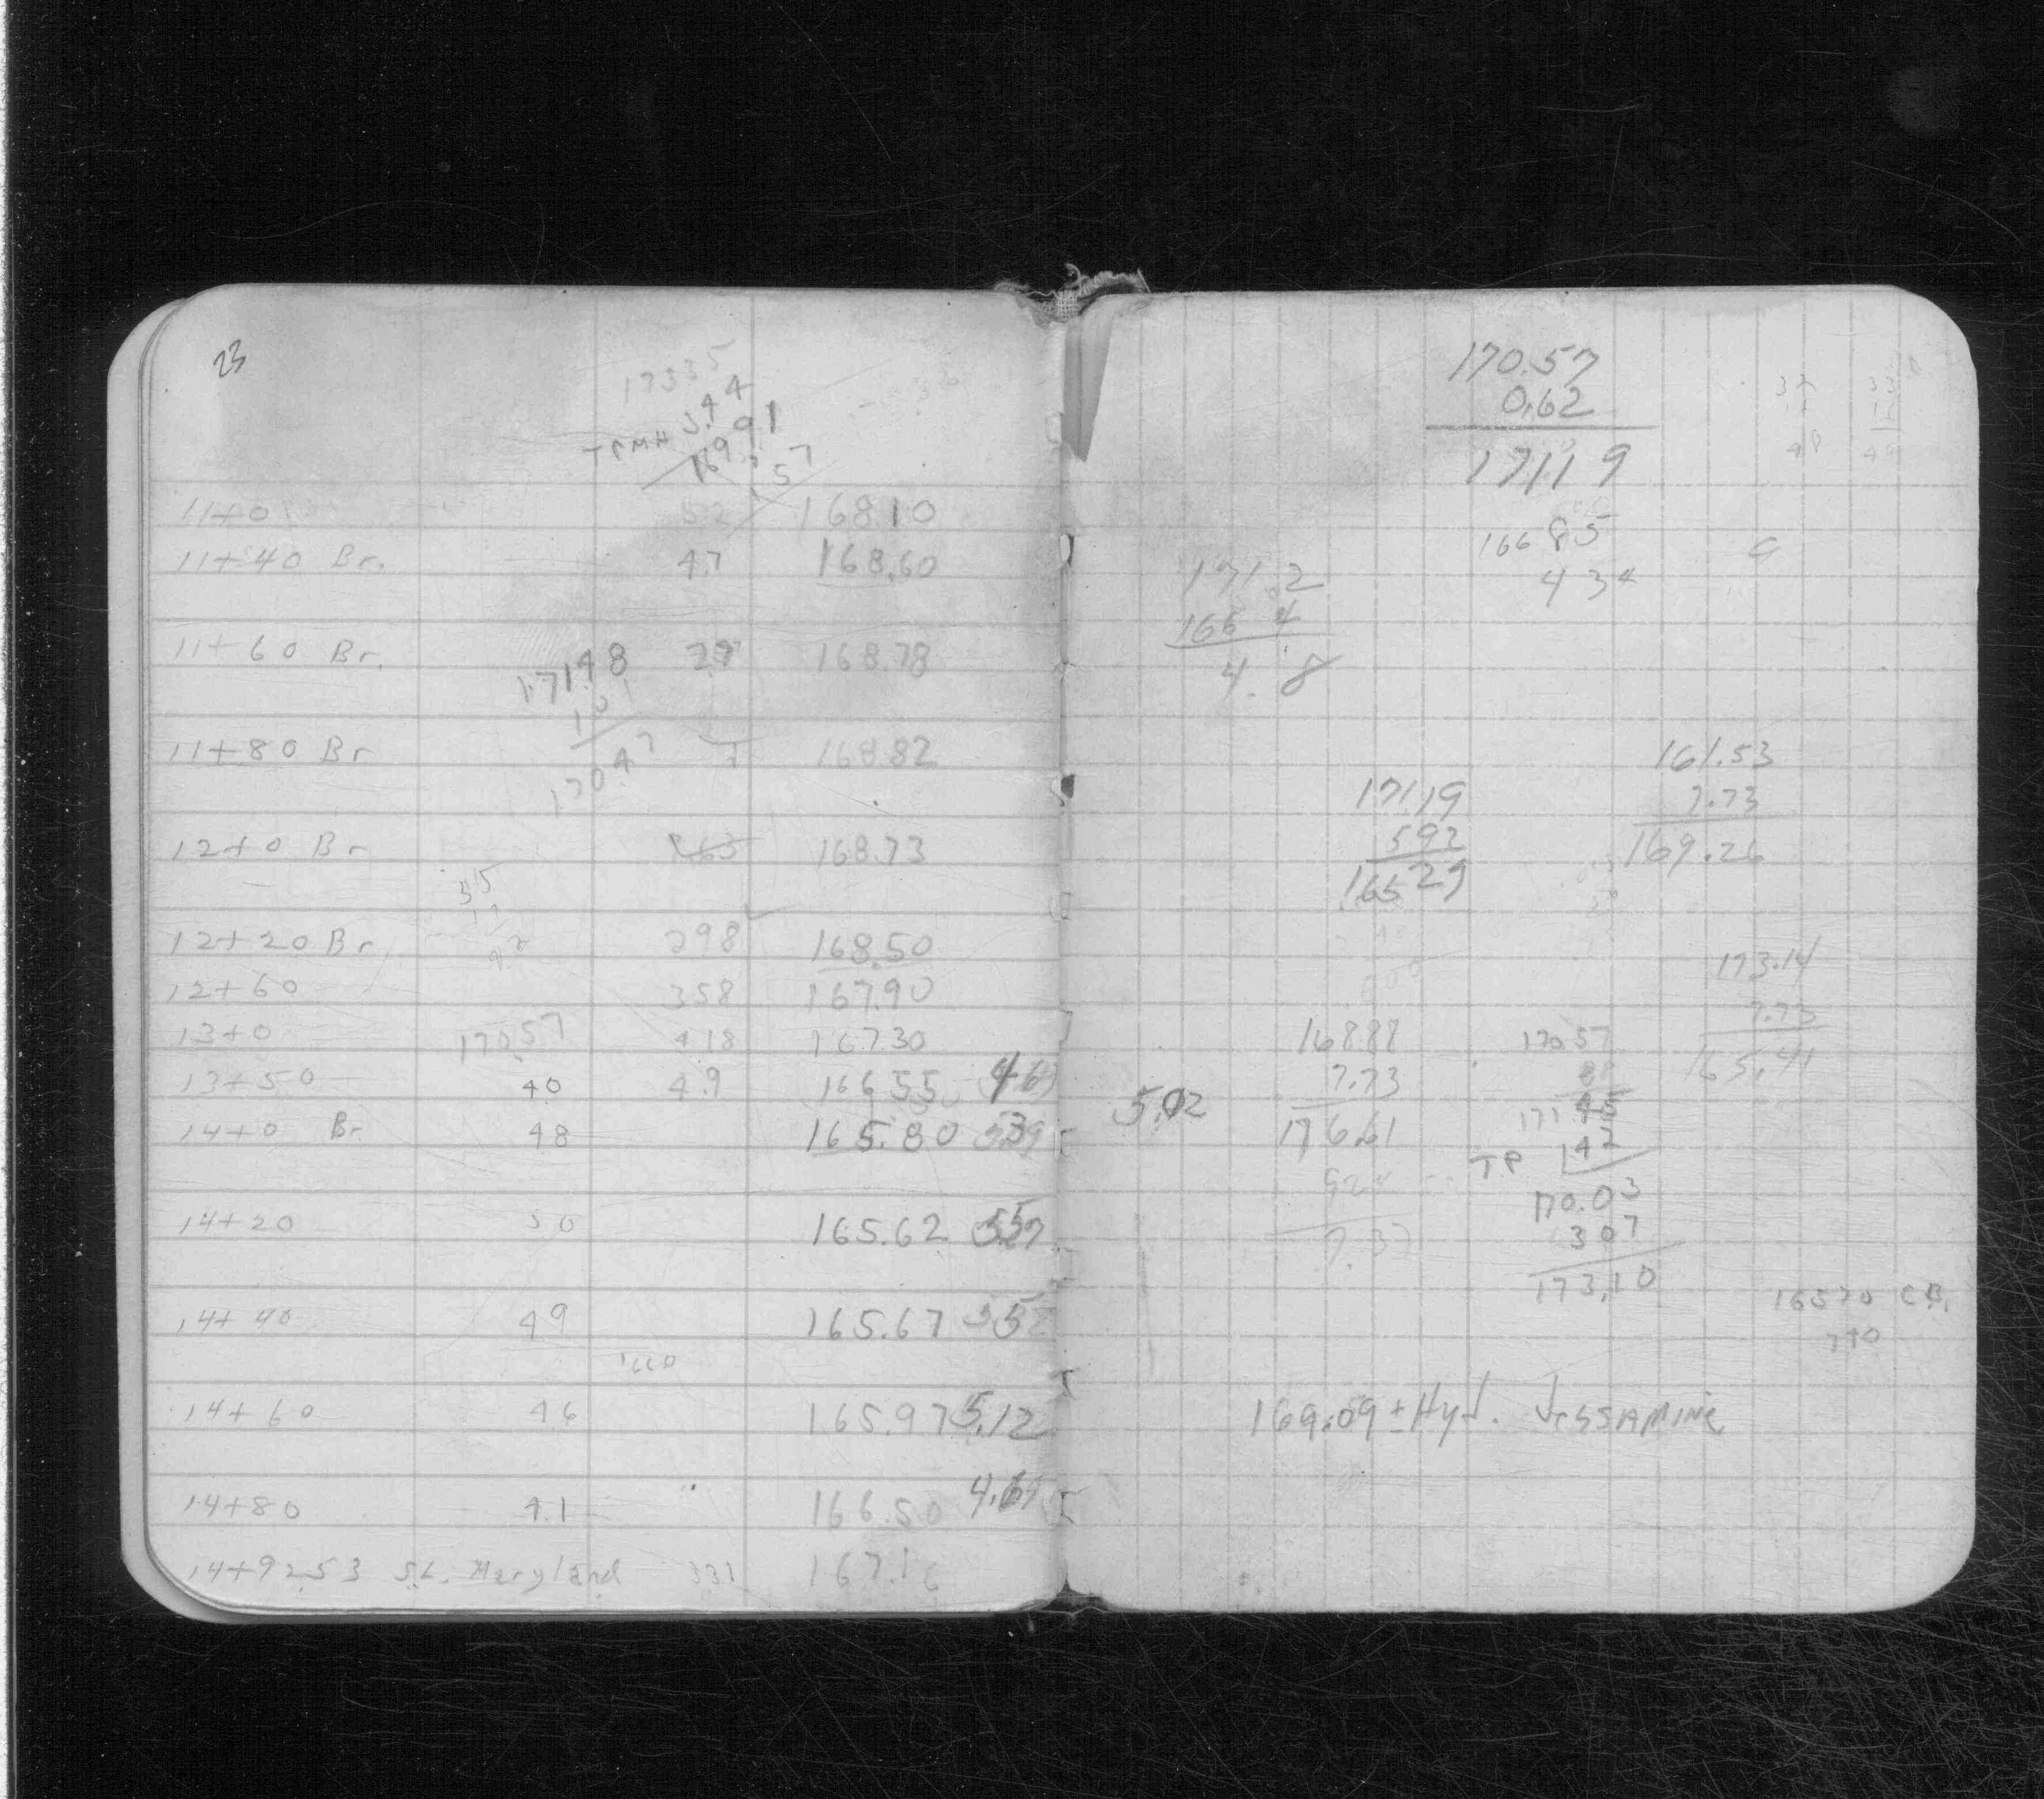 23
17335
3.44
TPMH 169.91
57
11+0 52 168.10
11+40 Br. 4.7 168.60
11+60 Br. 17148 29 168.78
101
11+80 Br 168.82
17047
12+0 Br 168.73
12+20 Br 298 168.50
12+60 358 167.90
13+0 170.57 418 167.30
13+50 40 4.9 166.55
14+0 Br 48 165.80 539
14+20 50 165.62 557
14+40 49 165.67 552
1660
14+60 46 165.97 5.12
14+80 41 166.50 4.69
14+92.53 S.L. Maryland 331 167.16
170.57
0.62
17119
16685
434
171.2
166 4
4.8
161.53
7.73
169.26
17119
592
16529
173.14
7.73
165.41
5.02
16888
7.73
176.61
924
7.37
17057
88
17145
TP 142
170.03
307
173.10
16520 C.B.
790
169.09 ± Hyd. Jessamine